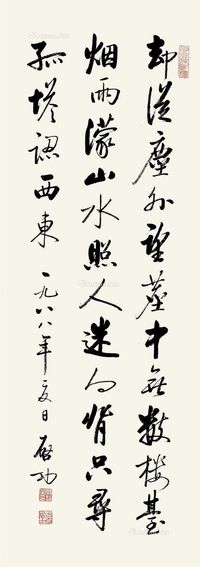 却从尘外望尘中无数楼台
烟雨濛山水照人迷向背只寻
孤塔认西东 一九八八年夏日 启功